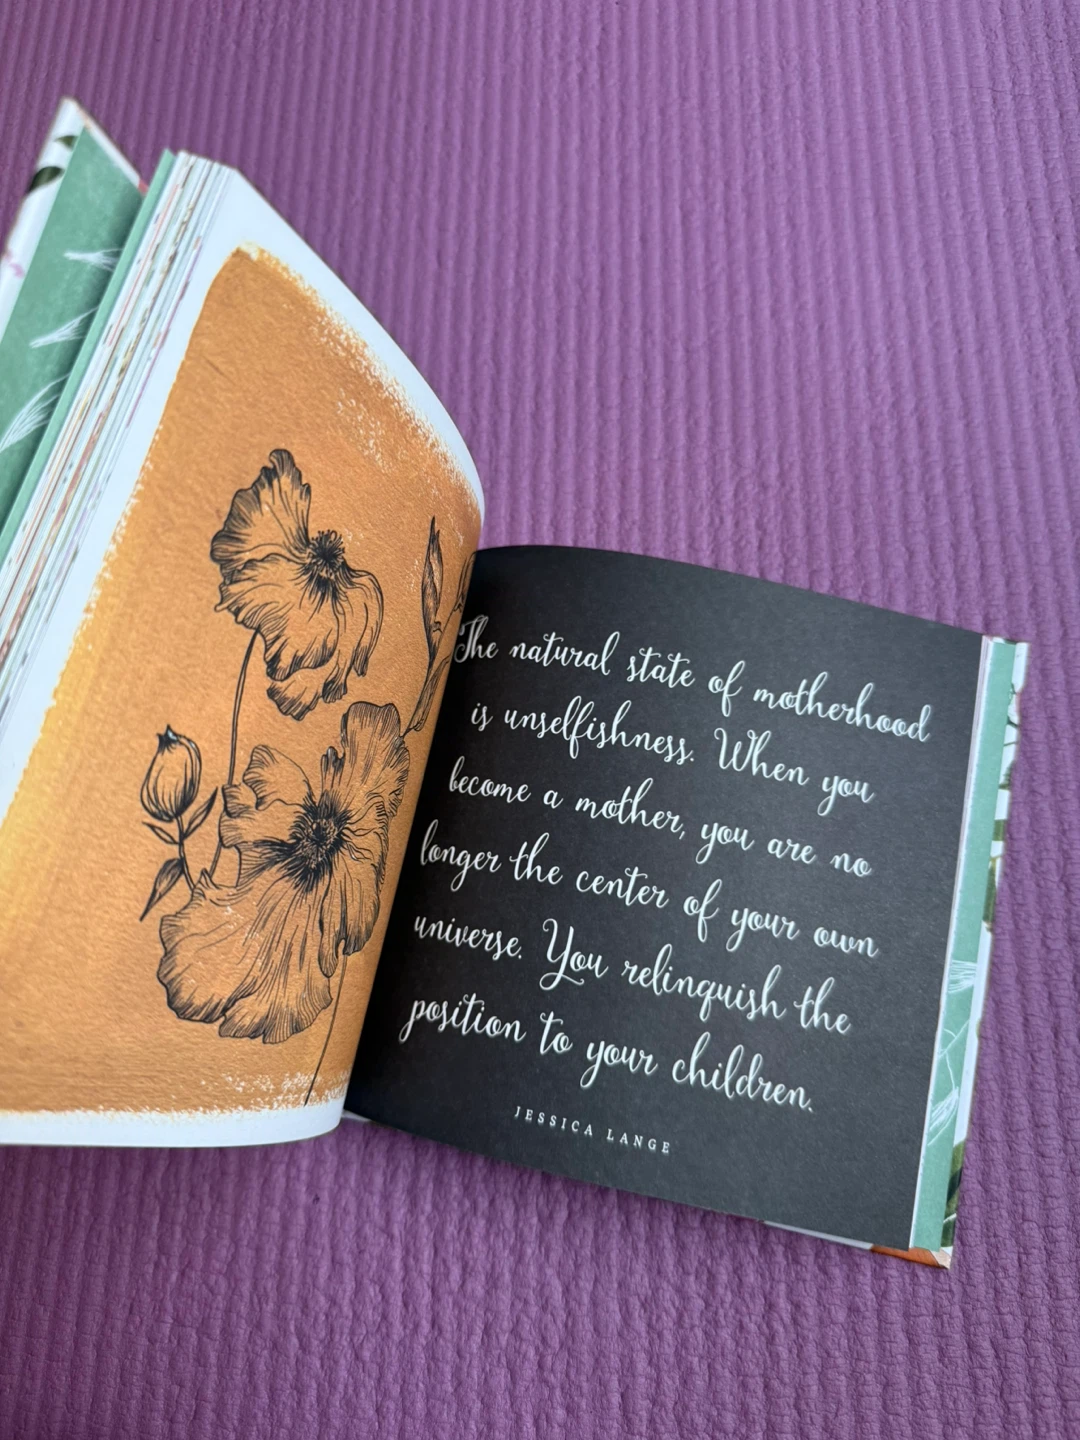 The natural state of motherhood
is unselfishness. When you
become a mother, you are no
longer the center of your own
universe. You relinquish the
position to your children.
JESSICA LANGE